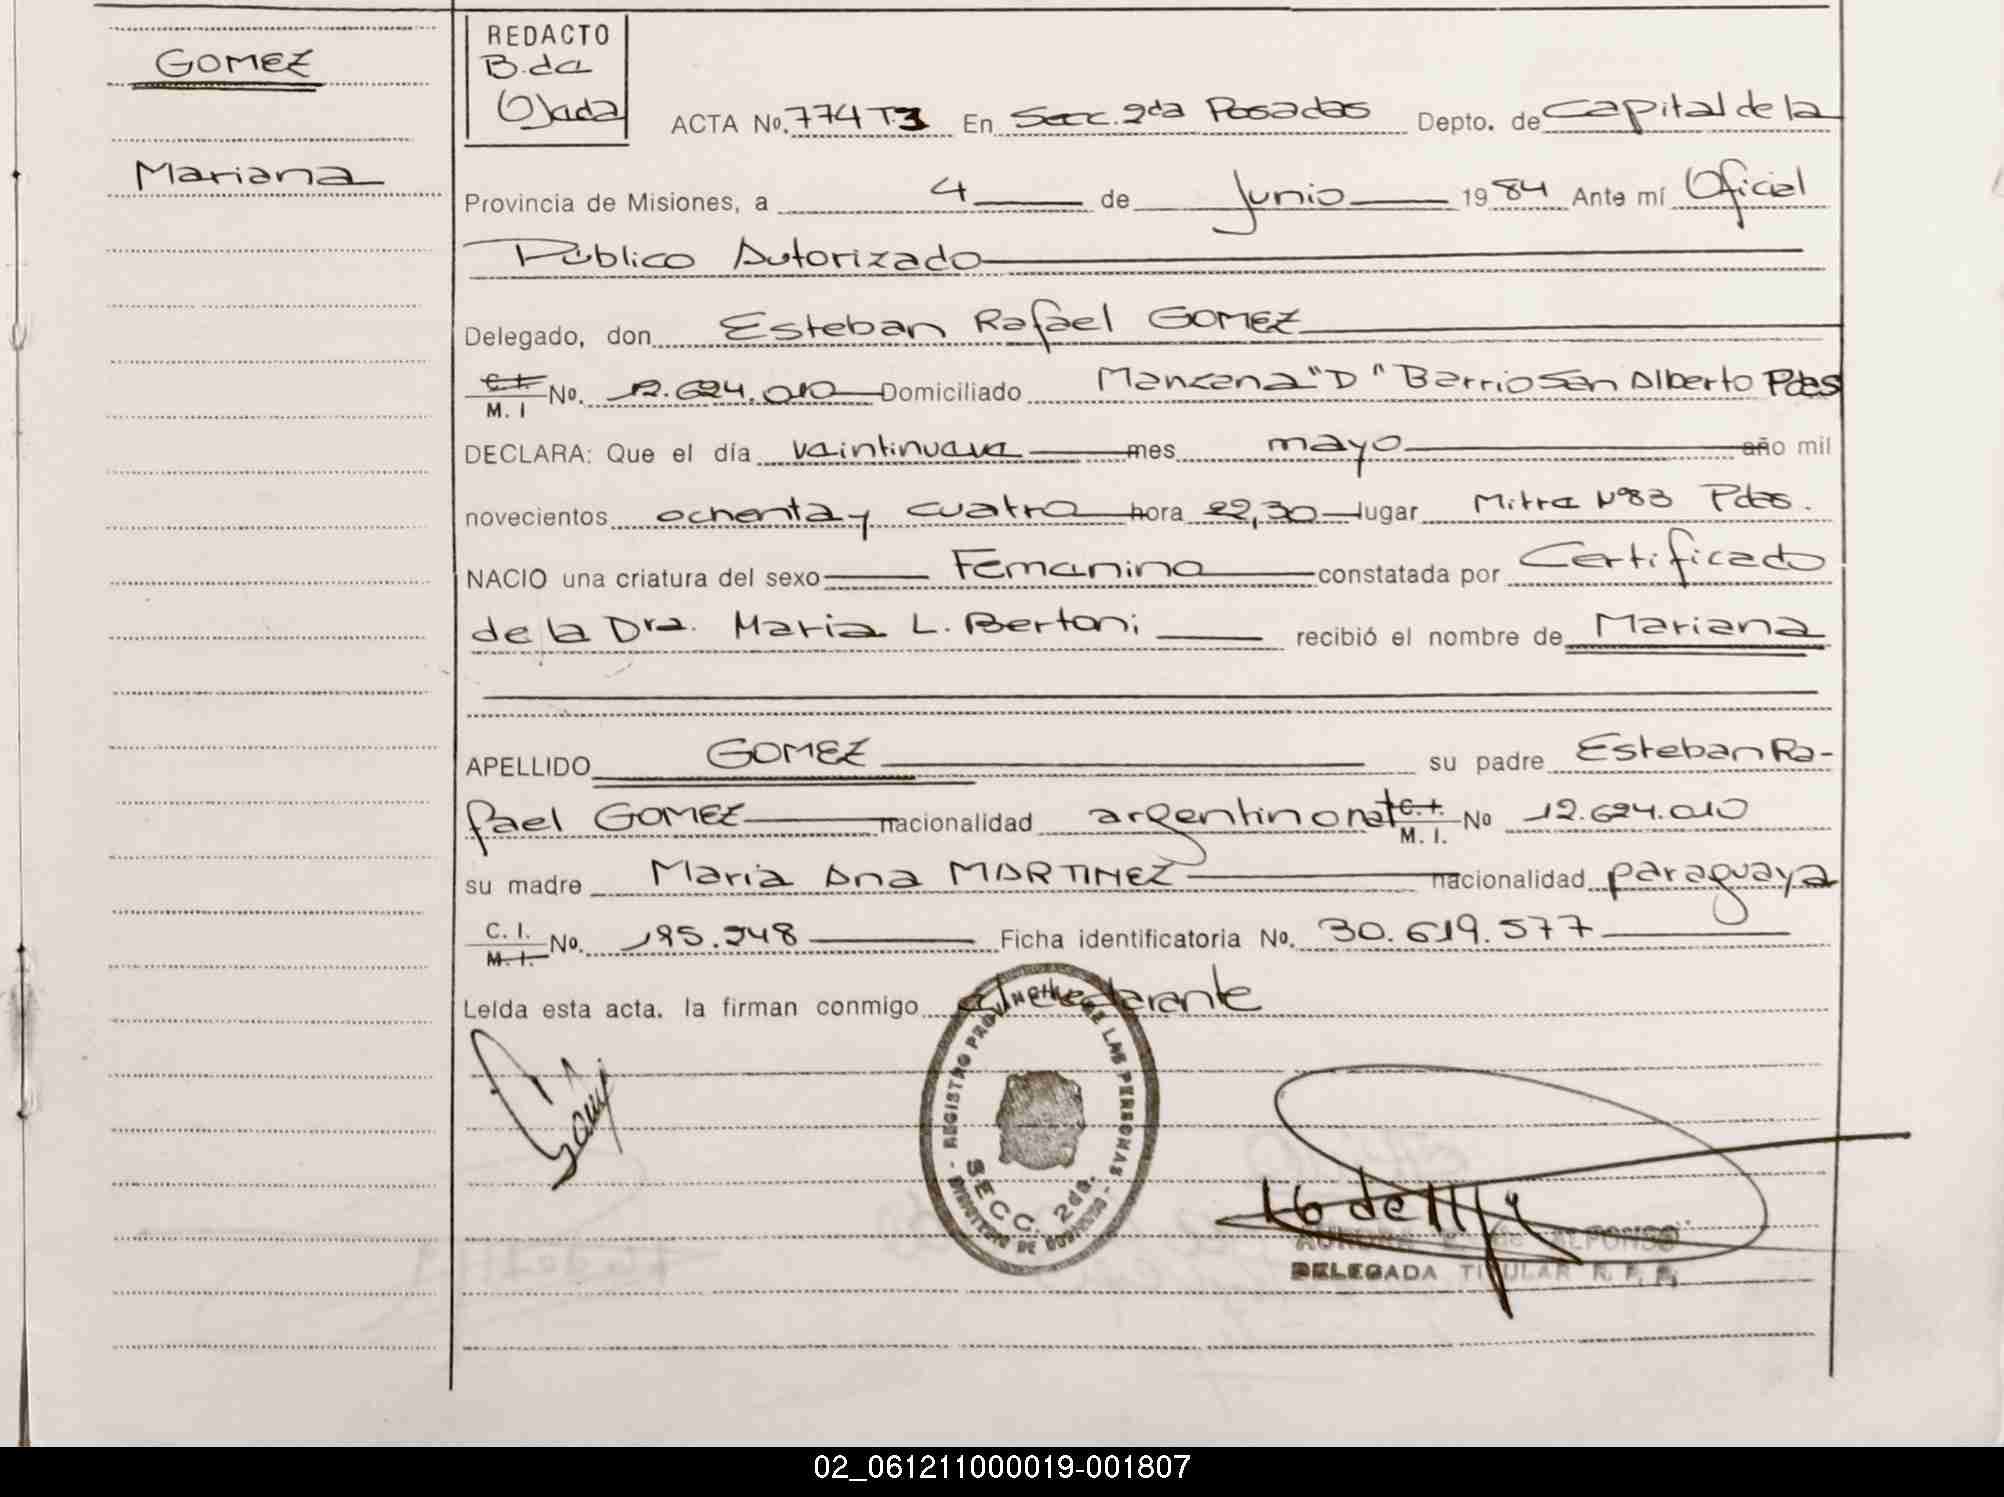 GOMEZ
Mariana
REDACTO
B. da
Ojeda
ACTA No. 774 T3 En Secc. 2da Posadas Depto. de Capital de la
Provincia de Misiones, a 4 de Junio 1984 Ante mí Oficial
Público Autorizado
Delegado, don Esteban Rafael GOMEZ
C. I.
M. I No. 12.624.010 Domiciliado Manzana "D" Barrio San Alberto Pdas
DECLARA: Que el día veintinueve mes mayo año mil
novecientos ochenta y cuatro hora 22,30 lugar Mitre Nº83 Pdas.
NACIO una criatura del sexo Femenino constatada por Certificado
de la Dra. Maria L. Bertoni recibió el nombre de Mariana
APELLIDO GOMEZ su padre Esteban Ra-
fael GOMEZ nacionalidad argentino nat C. I.
M. I. No 12.624.010
su madre Maria Ana MARTINEZ nacionalidad paraguaya
C. I.
M. I. No. 195.248 Ficha identificatoria No. 30.619.577
Leída esta acta. la firman conmigo el declarante
REGISTRO PROVINCIAL DE LAS PERSONAS
SECC. 2da.
MINISTERIO DE GOBIERNO
DE ALFONSO
DELEGADA TITULAR R. P. P.
02_061211000019-001807